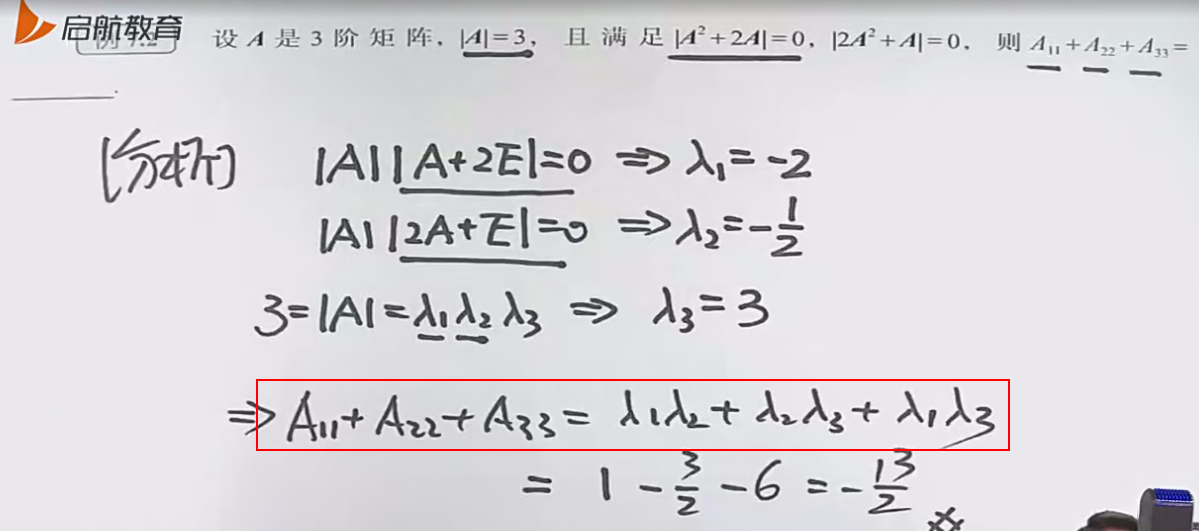 启航教育
例 7.2 设 A 是 3 阶 矩 阵, |A|=3, 且 满 足 |A²+2A|=0, |2A²+A|=0, 则 A₁₁+A₂₂+A₃₃=
[分析] |A||A+2E|=0 ⇒ λ₁=-2
|A||2A+E|=0 ⇒ λ₂=-1/2
3=|A|=λ₁λ₂λ₃ ⇒ λ₃=3
⇒ A₁₁+A₂₂+A₃₃=λ₁λ₂+λ₂λ₃+λ₁λ₃
= 1 - 3/2 - 6 = -13/2